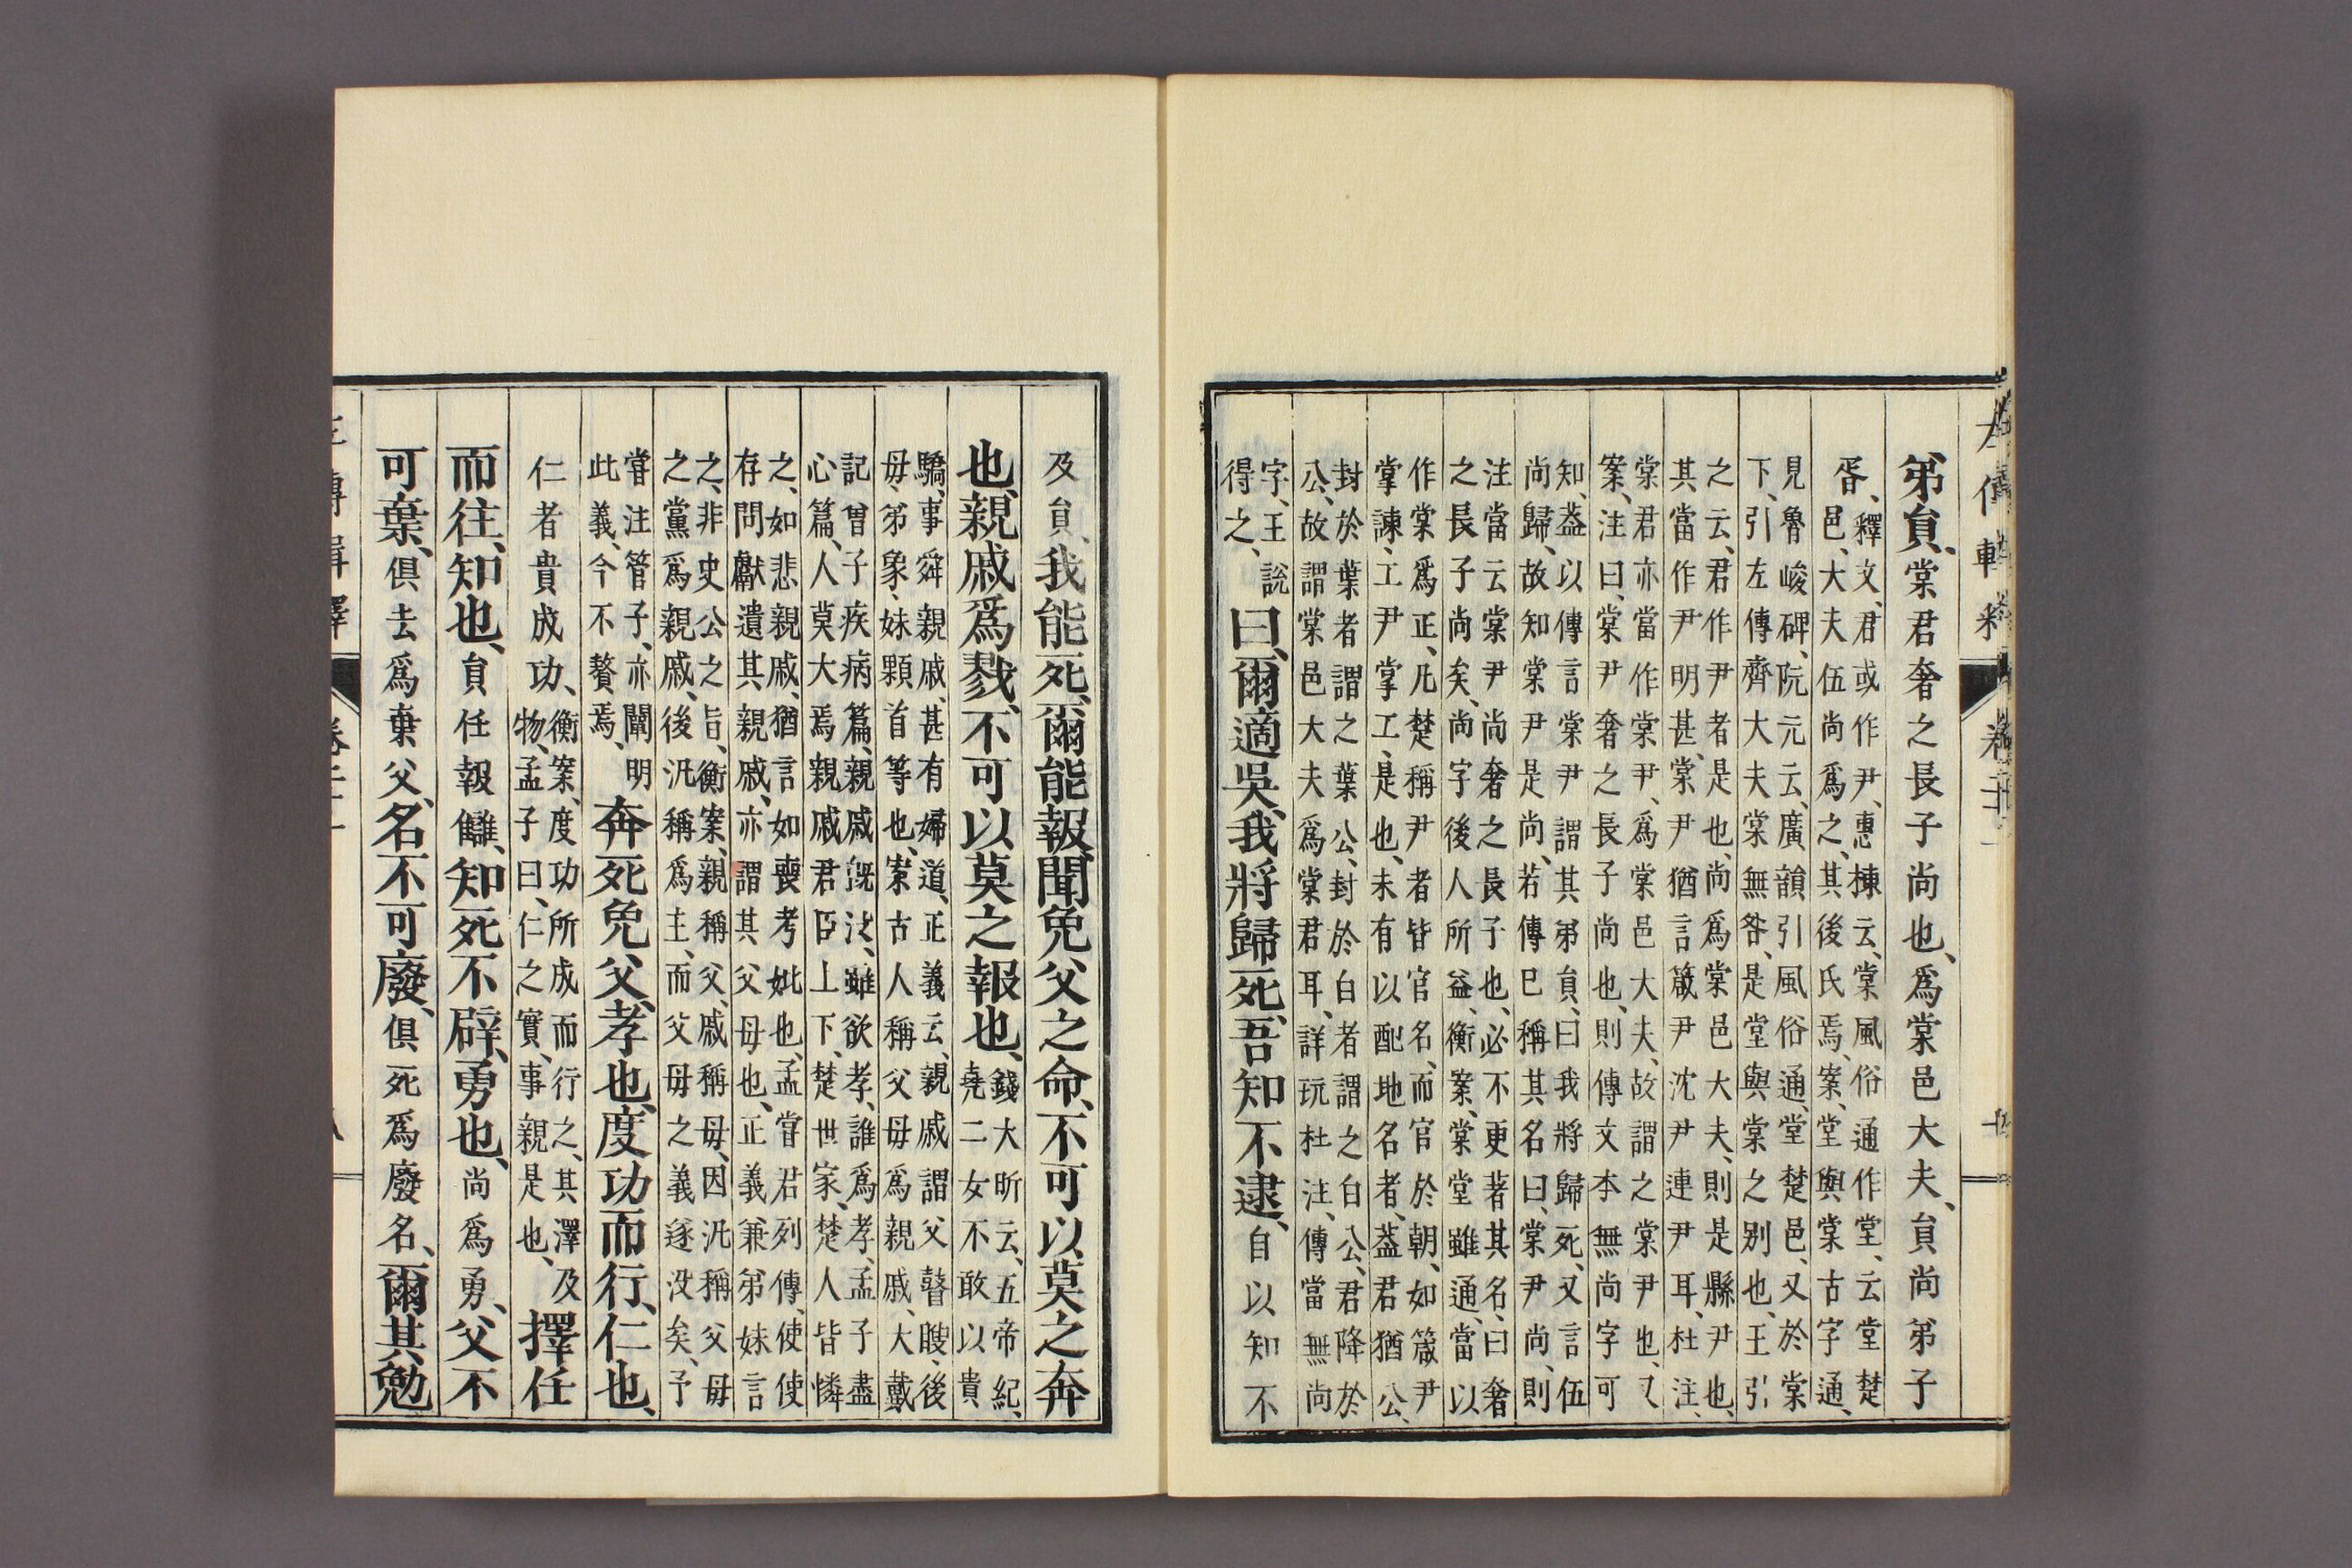 弟員、棠君奢之長子尚也、爲棠邑大夫、員尚弟子
胥、釋文、君或作尹、惠棟云、棠風俗通作堂、云堂楚
邑、大夫伍尚爲之、其後氏焉、案、堂與棠古字通、
見魯峻碑、阮元云、廣韻引風俗通、堂楚邑、又於棠
下、引左傳齊大夫棠無咎、是堂與棠之別也、王引
之云、君作尹者是也、尚爲棠邑大夫、則是縣尹也、
其當作尹明甚、棠尹猶言箴尹沈尹連尹耳、杜注、
棠君亦當作棠尹、爲棠邑大夫、故謂之棠尹也、又
案、注曰、棠尹奢之長子尚也、則傳文本無尚字可
知、葢以傳言棠尹謂其弟員、曰我將歸死、又言伍
尚歸、故知棠尹是尚、若傳巳稱其名曰、棠尹尚、則
注當云棠尹尚奢之長子也、必不更著其名、曰奢
之長子尚矣、尚字後人所益、衡案、棠堂雖通、當以
作棠爲正、凡楚稱尹者皆官名、而官於朝、如箴尹
掌諫、工尹掌工、是也、未有以配地名者、葢君猶公、
封於葉者謂之葉公、封於白者謂之白公、君降於
公、故謂棠邑大夫爲棠君耳、詳玩杜注、傳當無尚
字、王說
得之、
曰、爾適吳、我將歸死、吾知不逮、自以知不
及員、我能死、爾能報、聞免父之命、不可以莫之奔
也、親戚爲戮、不可以莫之報也、
錢大昕云、五帝紀、
堯二女不敢以貴
驕、事舜親戚、甚有婦道、正義云、親戚謂父瞽瞍、後
母、弟象、妹顆首等也、案古人稱父母爲親戚、大戴
記曾子疾病篇、親戚旣沒、雖欲孝、誰爲孝、孟子盡
心篇、人莫大焉親戚君臣上下、楚世家、楚人皆憐
之、如悲親戚、猶言如喪考妣也、孟嘗君列傳、使使
存問獻遺其親戚、亦謂其父母也、正義兼弟妹言
之、非史公之旨、衡案、親稱父、戚稱母、因汎稱父母
之黨爲親戚、後汎稱爲主、而父母之義遂沒矣、予
嘗注管子、亦闡明
此義、今不贅焉、
奔死免父、孝也、度功而行、仁也、
仁者貴成功、
衡案、度功所成而行之、其澤及
物、孟子曰、仁之實、事親是也、
擇任
而往、知也、員任報讎、知死不辟、勇也、尚爲勇、父不
可棄、俱去爲棄父、名不可廢、俱死爲廢名、爾其勉